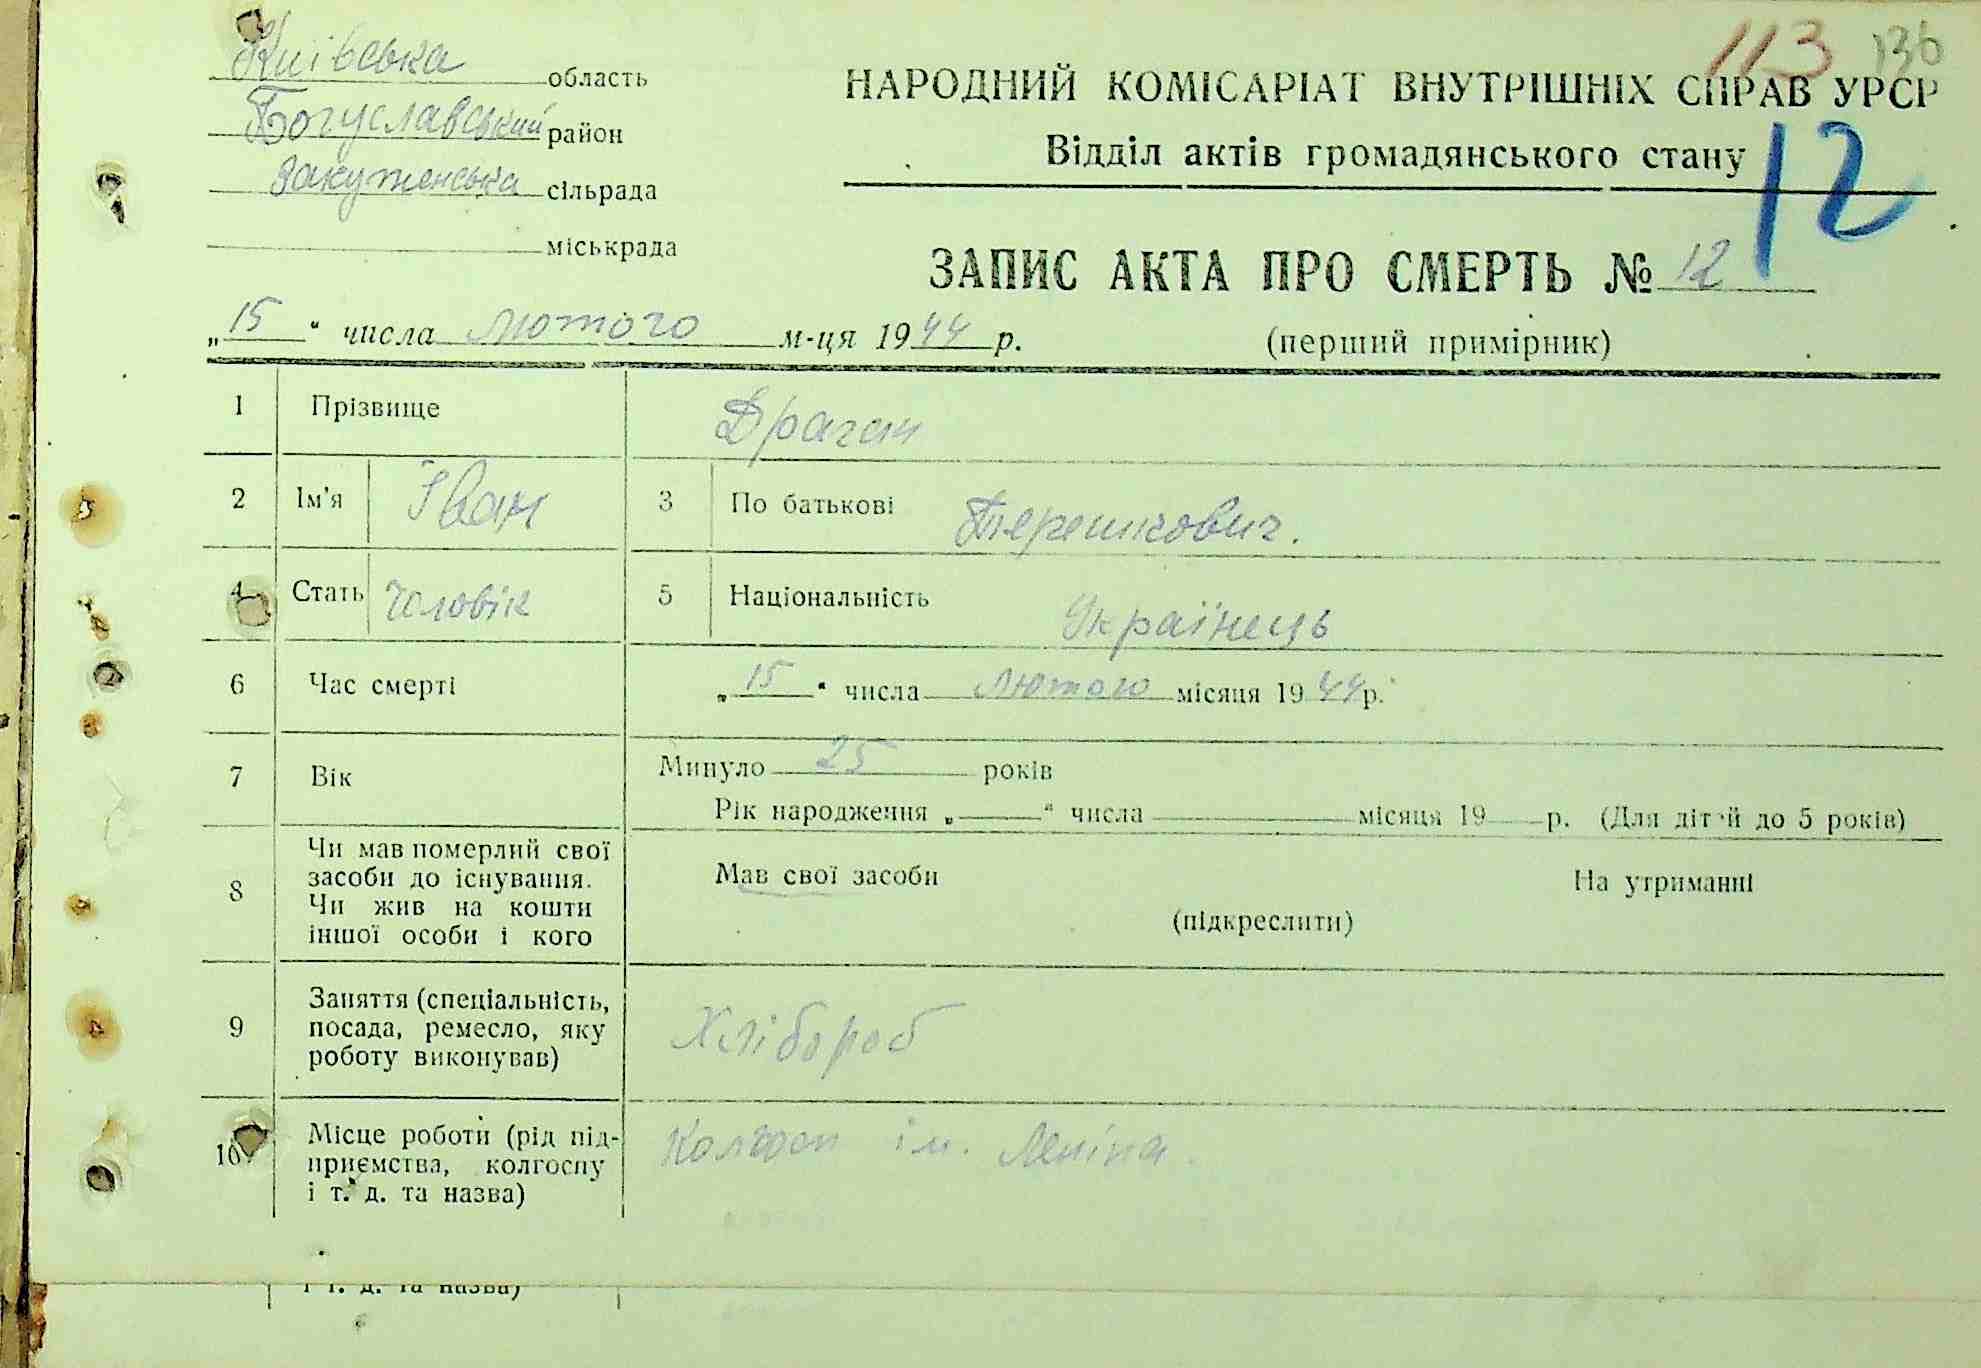 113 136
Київська область
Богуславський район
Закутенська сільрада
міськрада
НАРОДНИЙ КОМІСАРІАТ ВНУТРІШНІХ СПРАВ УРСР
Відділ актів громадянського стану
12
ЗАПИС АКТА ПРО СМЕРТЬ № 12
(перший примірник)
„15“ числа лютого м-ця 1944 р.
1 Прізвище Драган
2 Ім'я Іван 3 По батькові Терешкович.
4 Стать Чоловік 5 Національність Українець
6 Час смерті „15“ числа лютого місяця 1944 р.
7 Вік Минуло 25 років
Рік народження „——“ числа —— місяця 19—— р. (Для дітей до 5 років)
8 Чи мав померлий свої
засоби до існування.
Чи жив на кошти
іншої особи і кого
Мав свої засоби На утриманні
(підкреслити)
9 Заняття (спеціальність,
посада, ремесло, яку
роботу виконував)
Хлібороб
10 Місце роботи (рід під-
приємства, колгоспу
і т. д. та назва)
Колгосп ім. Леніна.
і т. д. та назва)